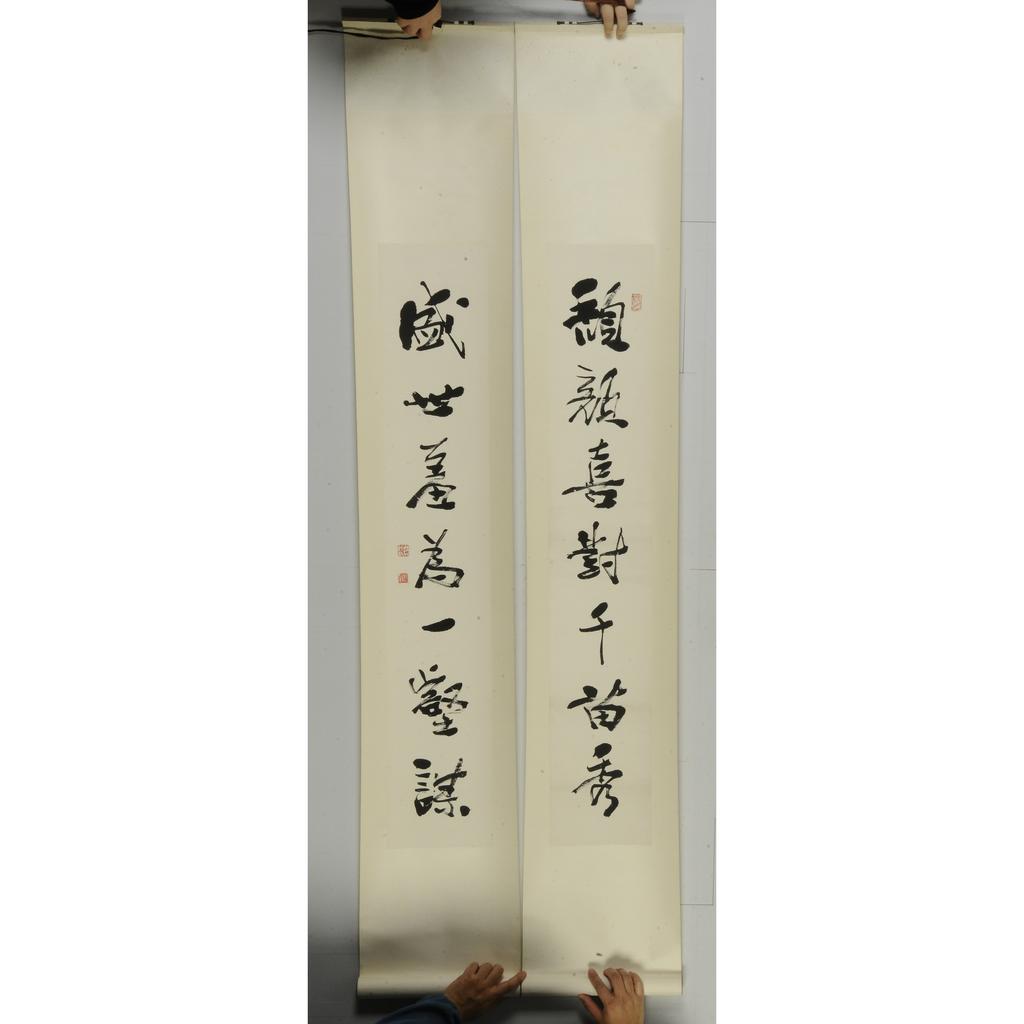 頹顏喜對千苗秀
盛世羞為一壑謀